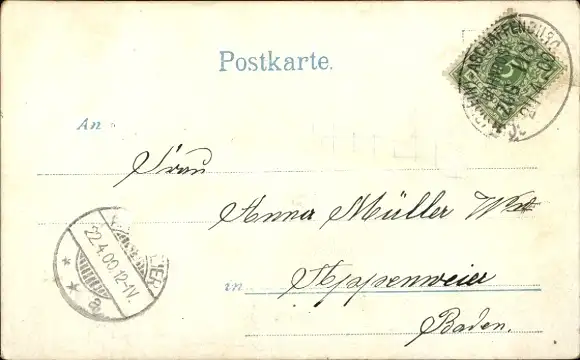 Postkarte.
ASCHAFFENBURG
An
Frau
Anna Müller Wwe
in Appenweier
Baden.
22.4.00.12-1V.
a